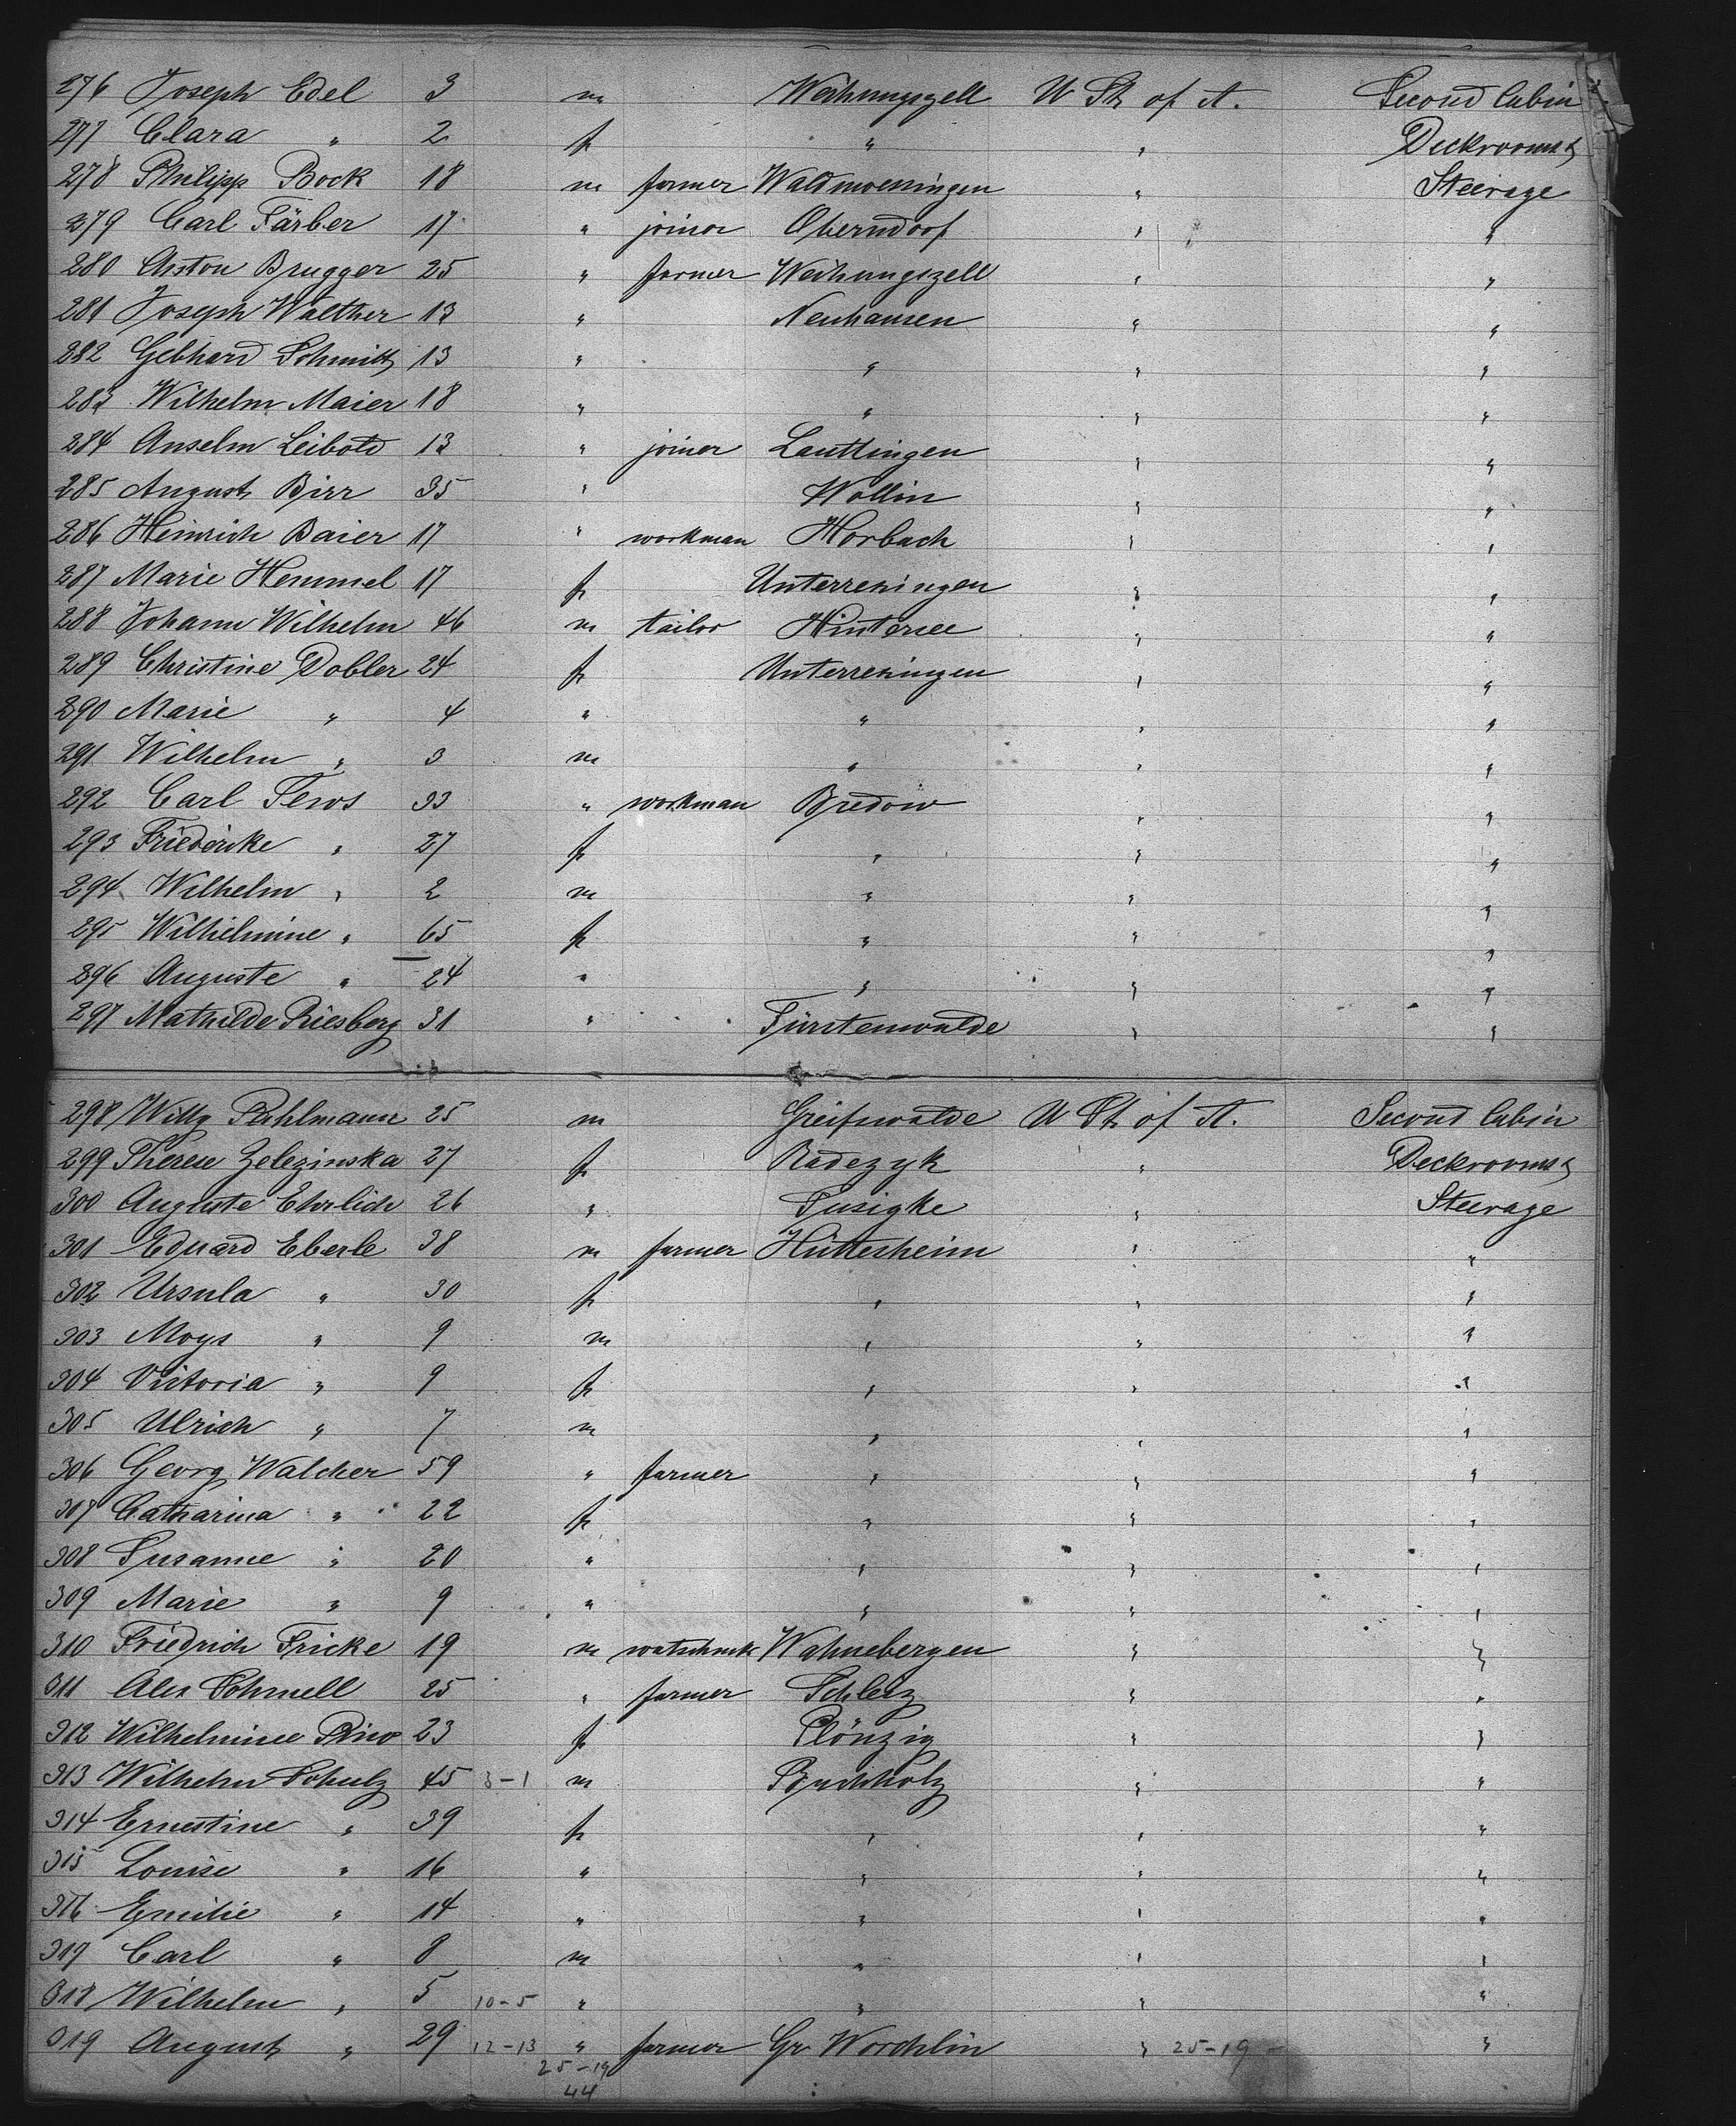 276 Joseph Edel 3 m Weihungszell U St. of A. Second Cabin
277 Clara " 2 f " " Deckrooms &
278 Philipp Bock 18 m farmer Waldmoessingen " Steerage
279 Carl Färber 17 " joiner Oberndorf " "
280 Anton Brugger 25 " farmer Weihungszell " "
281 Joseph Walther 13 " Neuhausen " "
282 Gebhard Schmitt 13 " " " "
283 Wilhelm Maier 18 " " " "
284 Anselm Leibold 13 " joiner Lauttingen " "
285 August Birr 35 " Wollin " "
286 Heinrich Baier 17 " workman Horbach " "
287 Marie Hemmel 17 f Unterrexingen " "
288 Johann Wilhelm 46 m tailor Hintersee " "
289 Christine Dobler 24 f Unterrexingen " "
290 Marie " 4 " " " "
291 Wilhelm " 3 m " " "
292 Carl Tews 33 " workman Bredow " "
293 Friedericke " 27 f " " "
294 Wilhelm " 2 m " " "
295 Wilhelmine " 65 f " " "
296 Auguste " 24 " " " "
297 Mathilde Riesberg 31 " Fürstenwalde " "
298 Willy Pahlmann 25 m Greifswalde U St. of A. Second Cabin
299 Therese Zelezinska 27 f Radezyk " Deckrooms &
300 Auguste Ehrlich 26 " Susigke " Steerage
301 Eduard Eberle 38 m farmer Hüttesheim " "
302 Ursula " 30 f " " "
303 Moys " 9 m " " "
304 Victoria " 9 f " " "
305 Ulrich " 7 m " " "
306 Georg Walcher 59 " farmer " " "
307 Catharina " 22 f " " "
308 Susanne " 20 " " " "
309 Marie " 9 " " " "
310 Friedrich Fricke 19 m Wahnebergen " "
311 Alex Schnell 25 " farmer Schleiz " "
312 Wilhelmine 23 f Plönzig " "
313 Wilhelm Schulz 45 3-1 m Buchholz " "
314 Ernestine " 39 f " " "
315 Louise " 16 " " " "
316 Emilie " 14 " " " "
317 Carl " 8 m " " "
318 Wilhelm " 5 10-5 " " " "
319 August " 29 12-13 " farmer Gr Worchlin " 25-19 - "
25-19
44